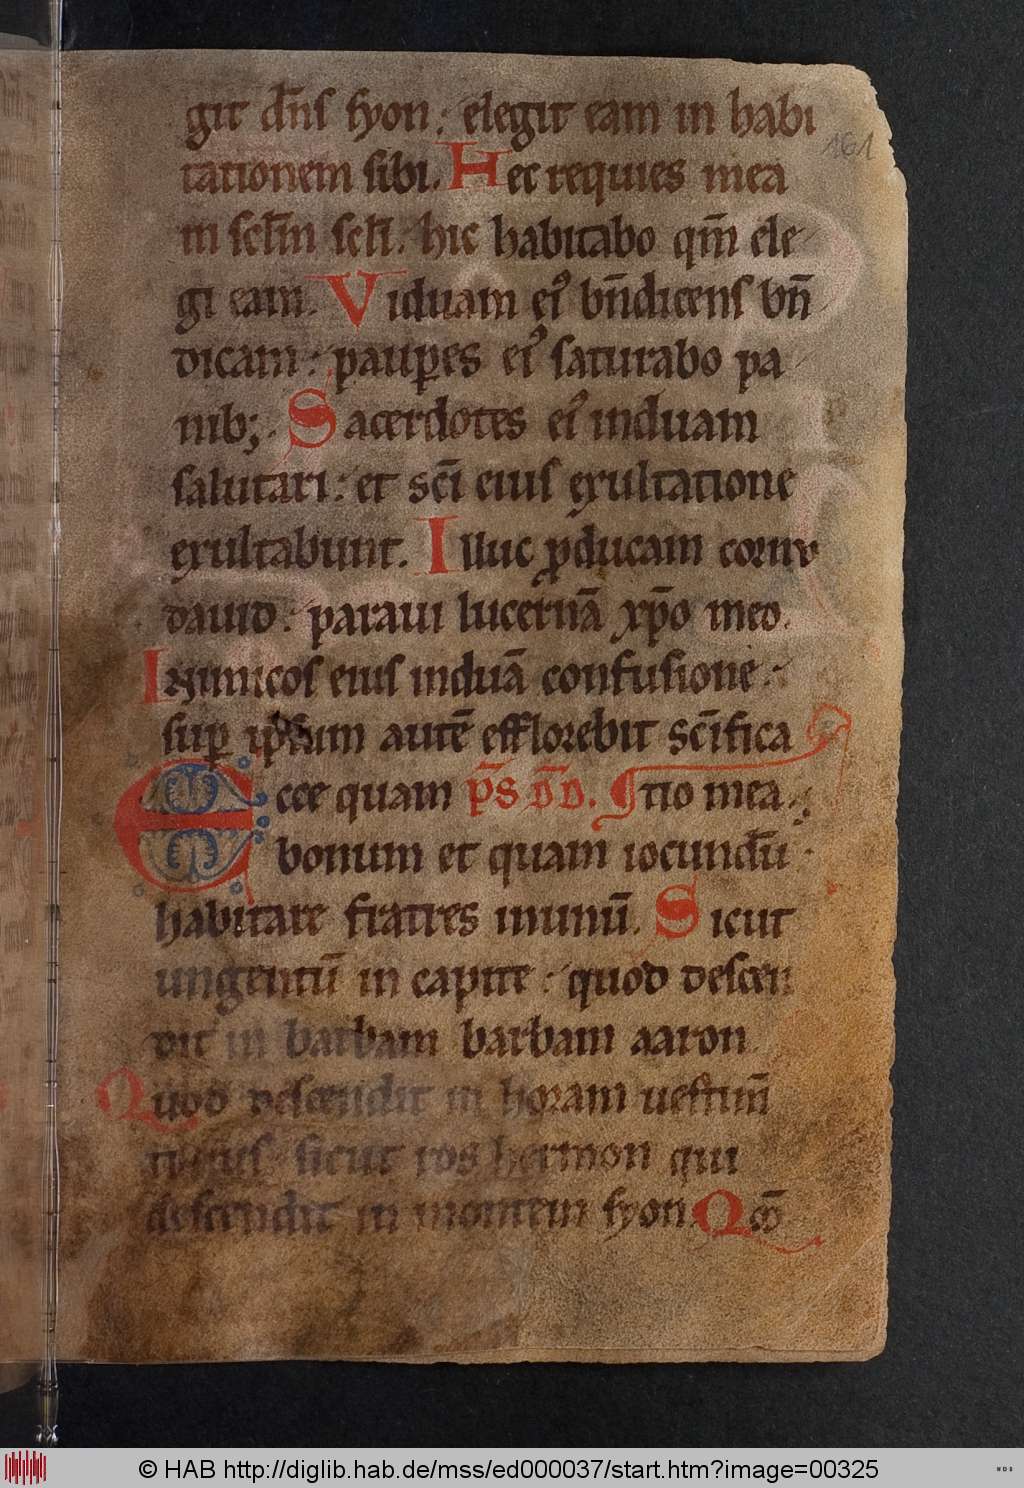 git dn̄s syon : elegit eam in habi
tationem sibi. Hec requies mea
in scl̄m scl̄i . hic habitabo qm̄ ele
gi eam. Viduam ei᾽ bn̄dicens bn̄
dicam : paupes ei᾽ saturabo pa
nib; . Sacerdotes ei᾽ induam
salutari : et sc̄i eius exultatione
exultabunt. Illuc pducam cornu
dauid : paraui lucernā xp̄o meo.
Inimicos eius induā confusione :
sup ipsum autē efflorebit sc̄ifica
Ecce quam p̄s dd̄. ¶ tio mea.
bonum et quam iocundū .
habitare fratres inunū. Sicut
ungentū in capite : quod descen
dit in barbam barbam aaron.
Quod descendit in horam uestim̄
ti eius sicut ros hermon qui
descendit in montem syon. Qm̄
161
© HAB http://diglib.hab.de/mss/ed000037/start.htm?image=00325